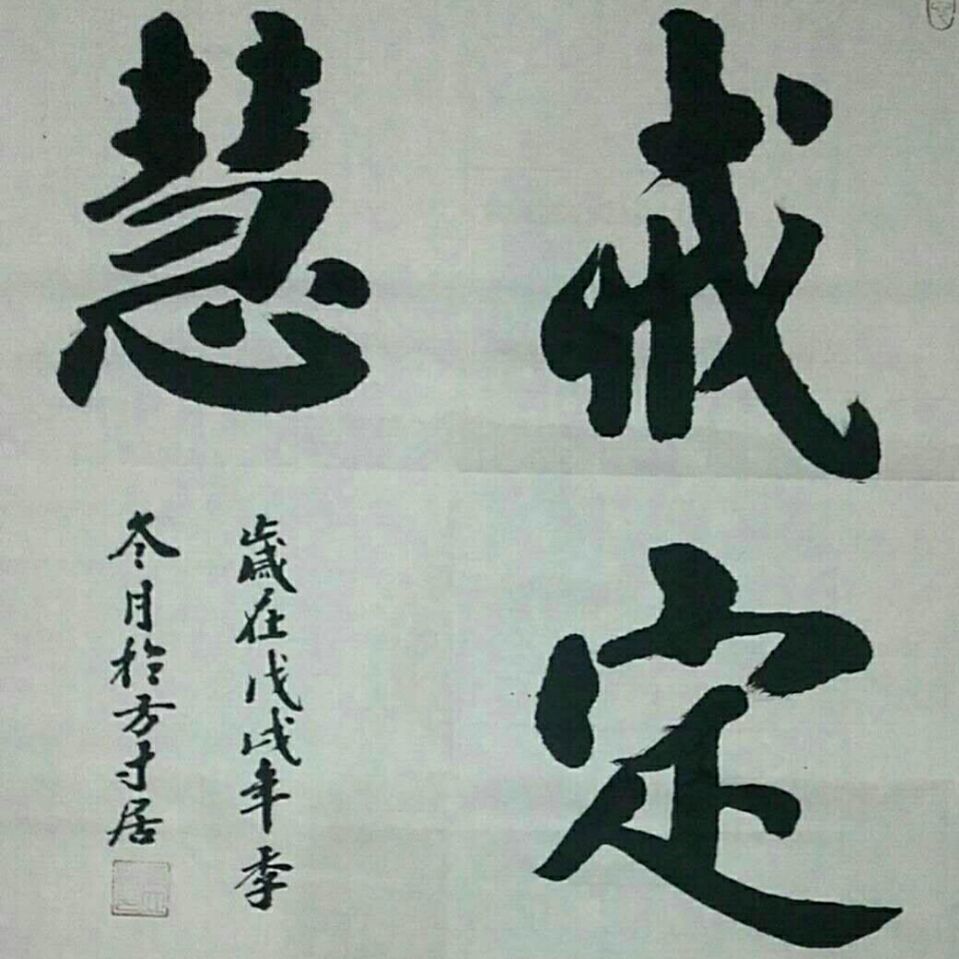 戒定
慧
歲在戊戌年季
冬月於方寸居